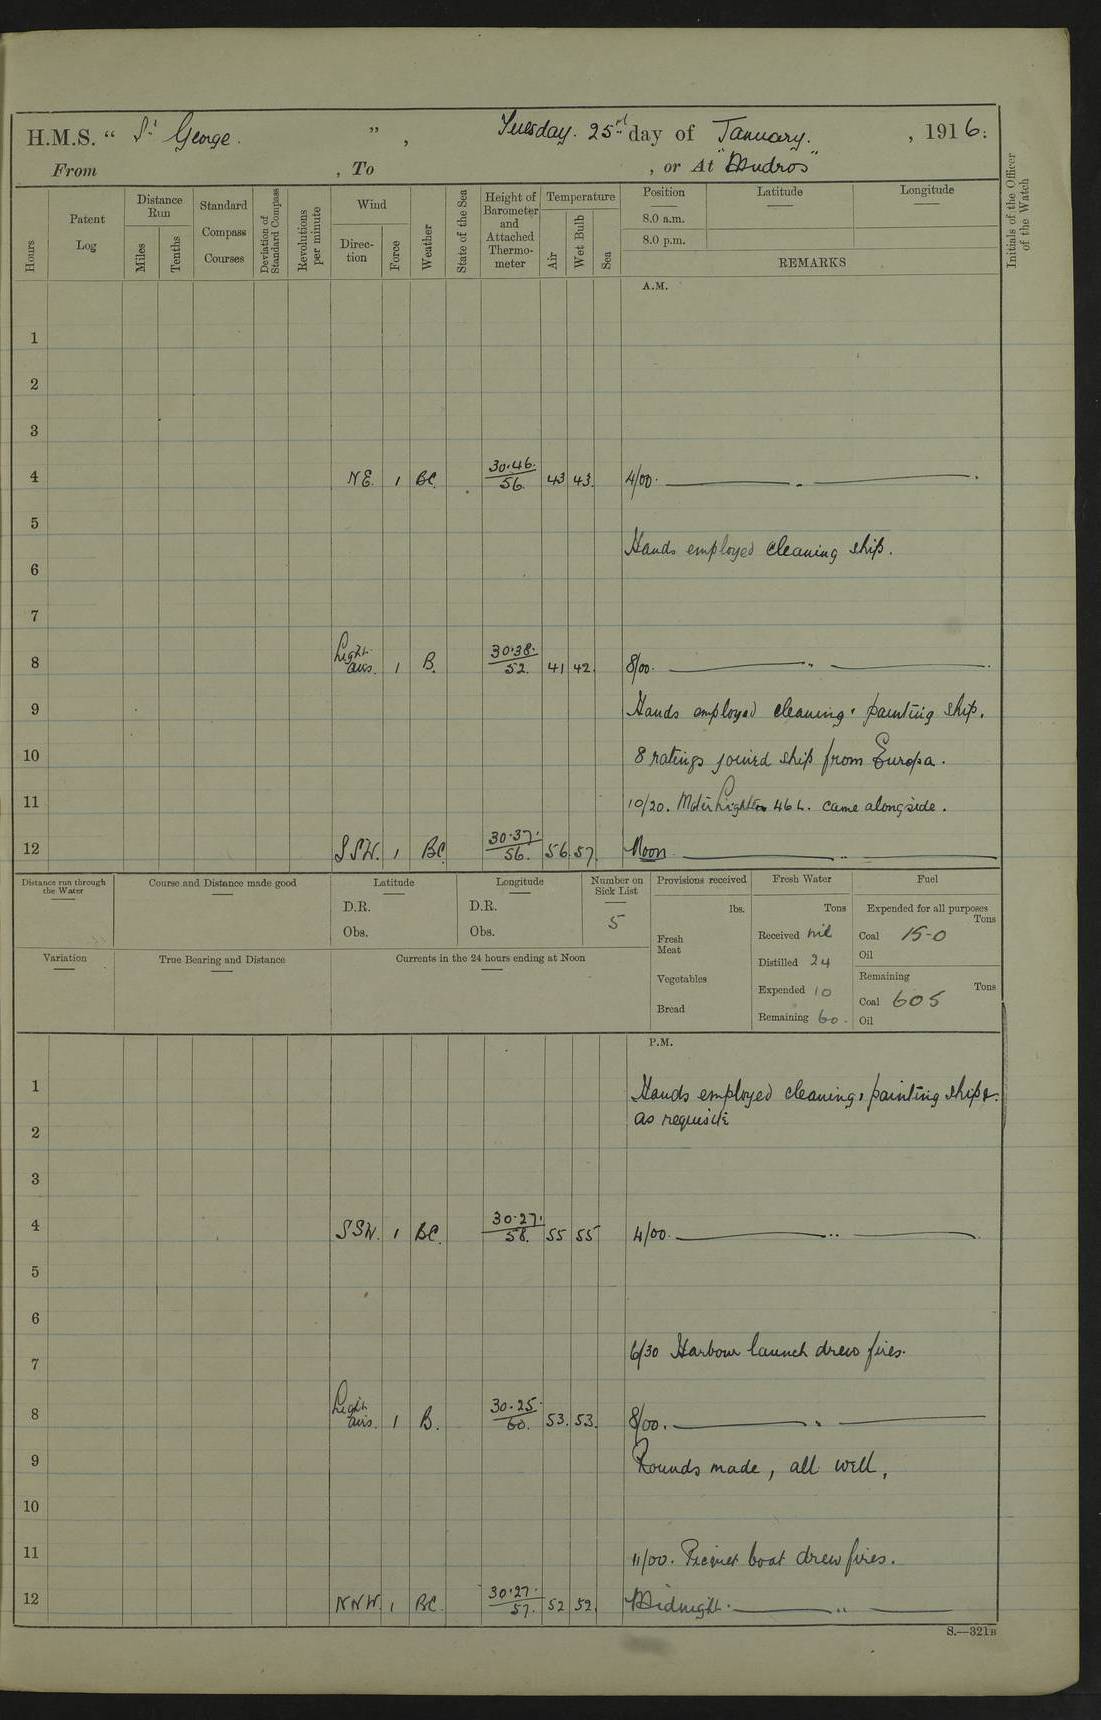 H.M.S. " St George. ", Tuesday. 25th day of January. , 1916.
From , To , or At "Mudros"
Hours
Patent Log
Distance Run
Miles
Tenths
Standard Compass Courses
Deviation of Standard Compass
Revolutions per minute
Wind
Direction
Force
Weather
State of the Sea
Height of Barometer and Attached Thermometer
Temperature
Air
Wet Bulb
Sea
Position Latitude Longitude
8.0 a.m.
8.0 p.m.
REMARKS
Initials of the Officer of the Watch
A.M.
1
2
3
4 NE. 1 BC. 30.46. 56. 43 43. 4/00. "
5
Hands employed cleaning ship.
6
7
8 Light airs. 1 B. 30.38. 52. 41 42. 8/00. "
9 Hands employed cleaning & painting ship.
10 8 ratings joined ship from Europa.
11 10/20. Motor Lighter 46 L. came alongside.
12 SSW. 1 BC 30.37. 56. 56. 57. Noon "
Distance run through the Water
Course and Distance made good
Latitude
D.R.
Obs.
Longitude
D.R.
Obs.
Number on Sick List
5
Provisions received
lbs.
Fresh Meat
Vegetables
Bread
Fresh Water
Tons
Received nil
Distilled 24
Expended 10
Remaining 60.
Fuel
Expended for all purposes
Tons
Coal 15-0
Oil
Remaining
Tons
Coal 605
Oil
Variation
True Bearing and Distance
Currents in the 24 hours ending at Noon
P.M.
1 Hands employed cleaning, painting ship &
as requisite
2
3
4 SSW. 1 BC. 30.27. 58. 55 55 4/00. "
5
6
6/30 Harbour launch drew fires.
7
8 Light airs. 1 B. 30.25. 60. 53. 53. 8/00. "
9 Rounds made, all well,
10
11 11/00. Picquet boat drew fires.
12 NNW. 1 BC. 30.27. 57. 52 52. Midnight. "
S.—321B